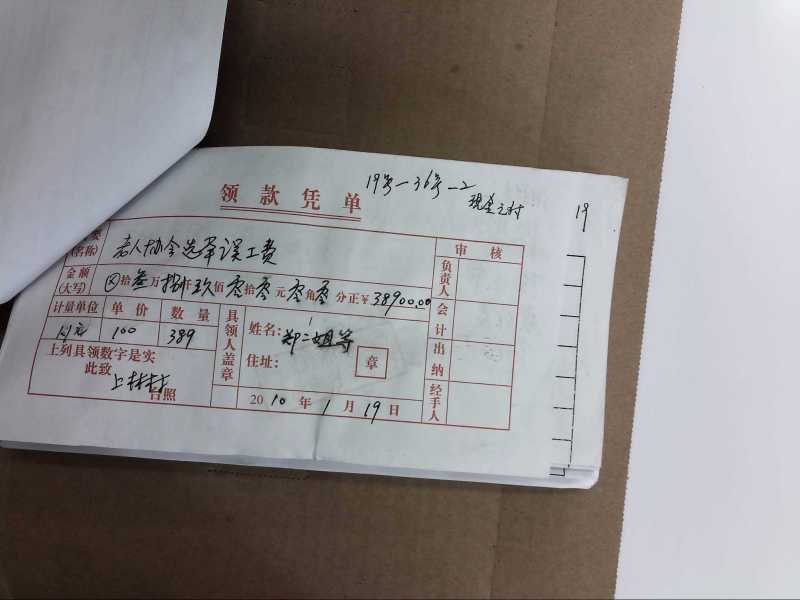 19号-36号-2
现金支付
19
领款凭单
(名称) 老人协会选举误工费
金额(大写) ⊗拾叁万捌仟玖佰零拾零元零角零分正¥38900.00
计量单位 单价 数量
100 389
上列具领数字是实
此致
上林村
台照
具领人盖章
姓名: 郑二姐等
住址:
章
2010年1月19日
审核
负责人
会计
出纳
经手人